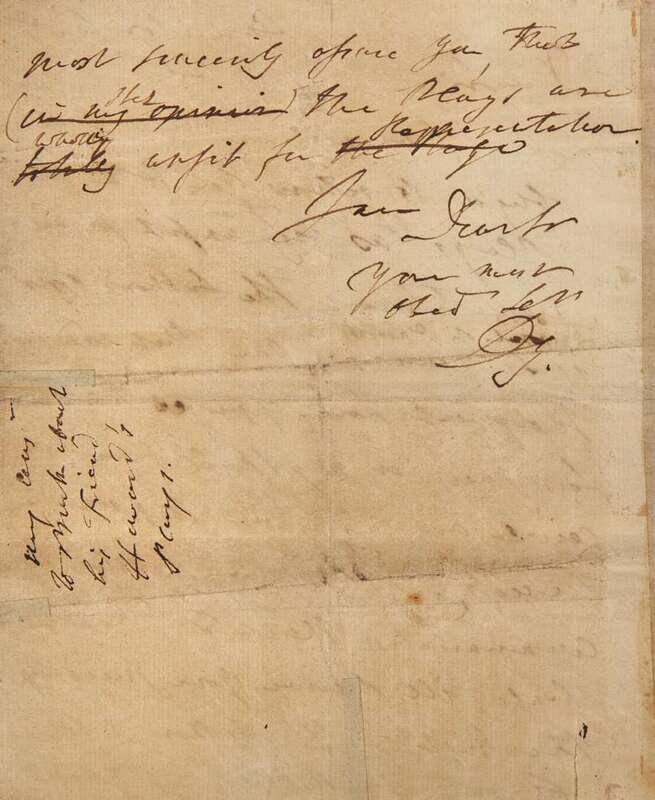 most sincerely assure you, that
(in my opinion) the Plays are
wholly unfit for the Stage Representation.
I am Dear Sr
your most
obedt Sert
DG.
my Ans
to Mr about
his Friend
Howard's
plays.